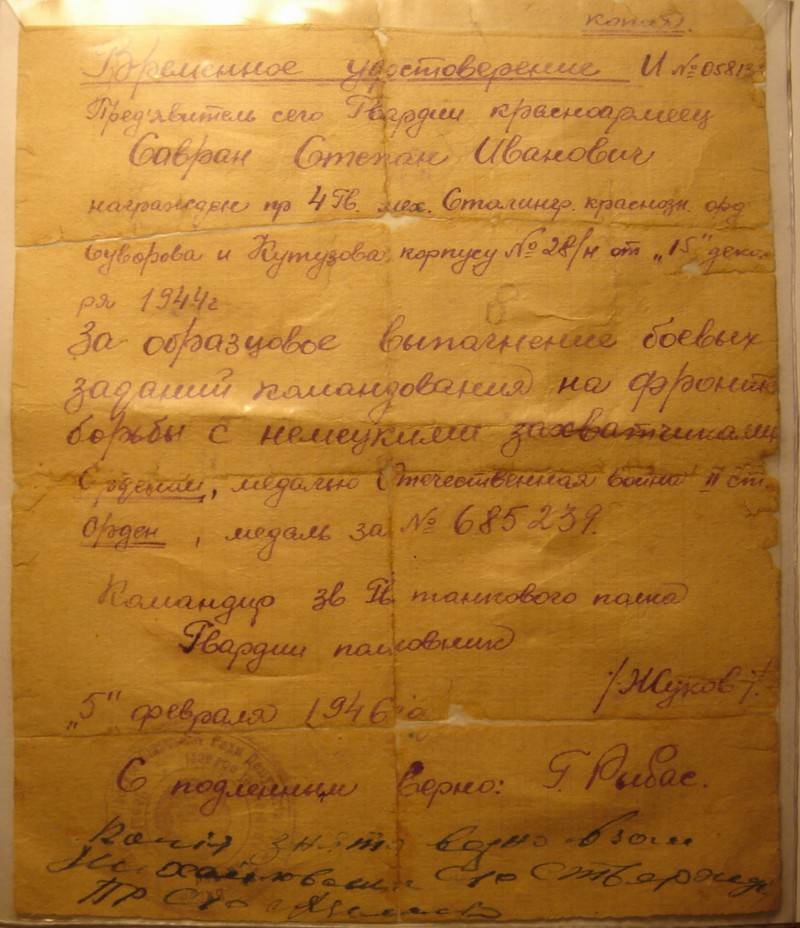 копия.
Временное удостоверение И № 05813
Пред'явитель сего Гвардии красноармеец
Савран Степан Иванович
награжден пр 4 Гв. мех. Сталингр. краснозн. орд
Суворова и Кутузова корпусу № 28/н от „15" декаб
ря 1944г
За образцовое выполнение боевых
заданий командования на фронте
борьбы с немецкими захватчиками
Орденом, медалью Отечественная война II ст.
Орден, медаль за № 685239.
Командир 38 Гв танкового полка
Гвардии полковник
/Жуков/.
„5" февраля 1946 г
С подленным верно: Г. Рыбас.
Копія знята